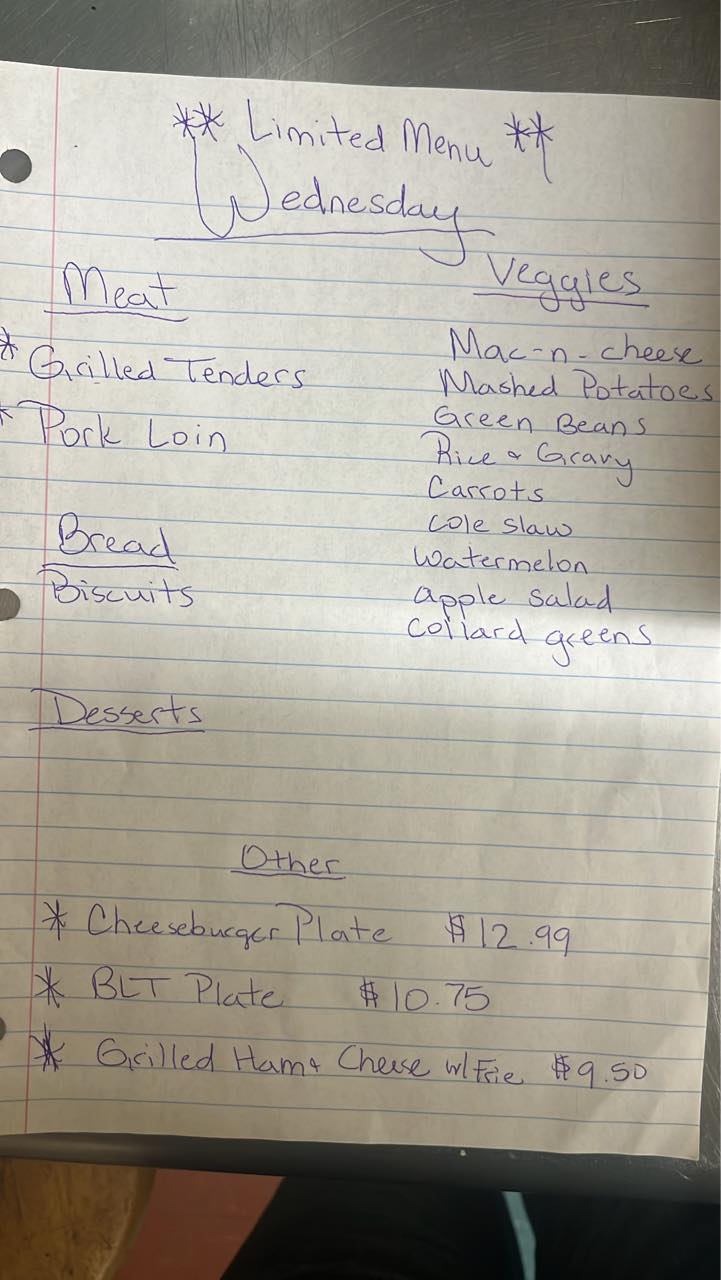 ** Limited Menu **
Wednesday
Meat
* Grilled Tenders
* Pork Loin
Bread
Biscuits
Desserts
Veggies
Mac-n-cheese
Mashed Potatoes
Green Beans
Rice & Gravy
Carrots
Cole slaw
Watermelon
apple salad
collard greens
Other
* Cheeseburger Plate $12.99
* BLT Plate $10.75
* Grilled Ham & Cheese w/ Frie $9.50